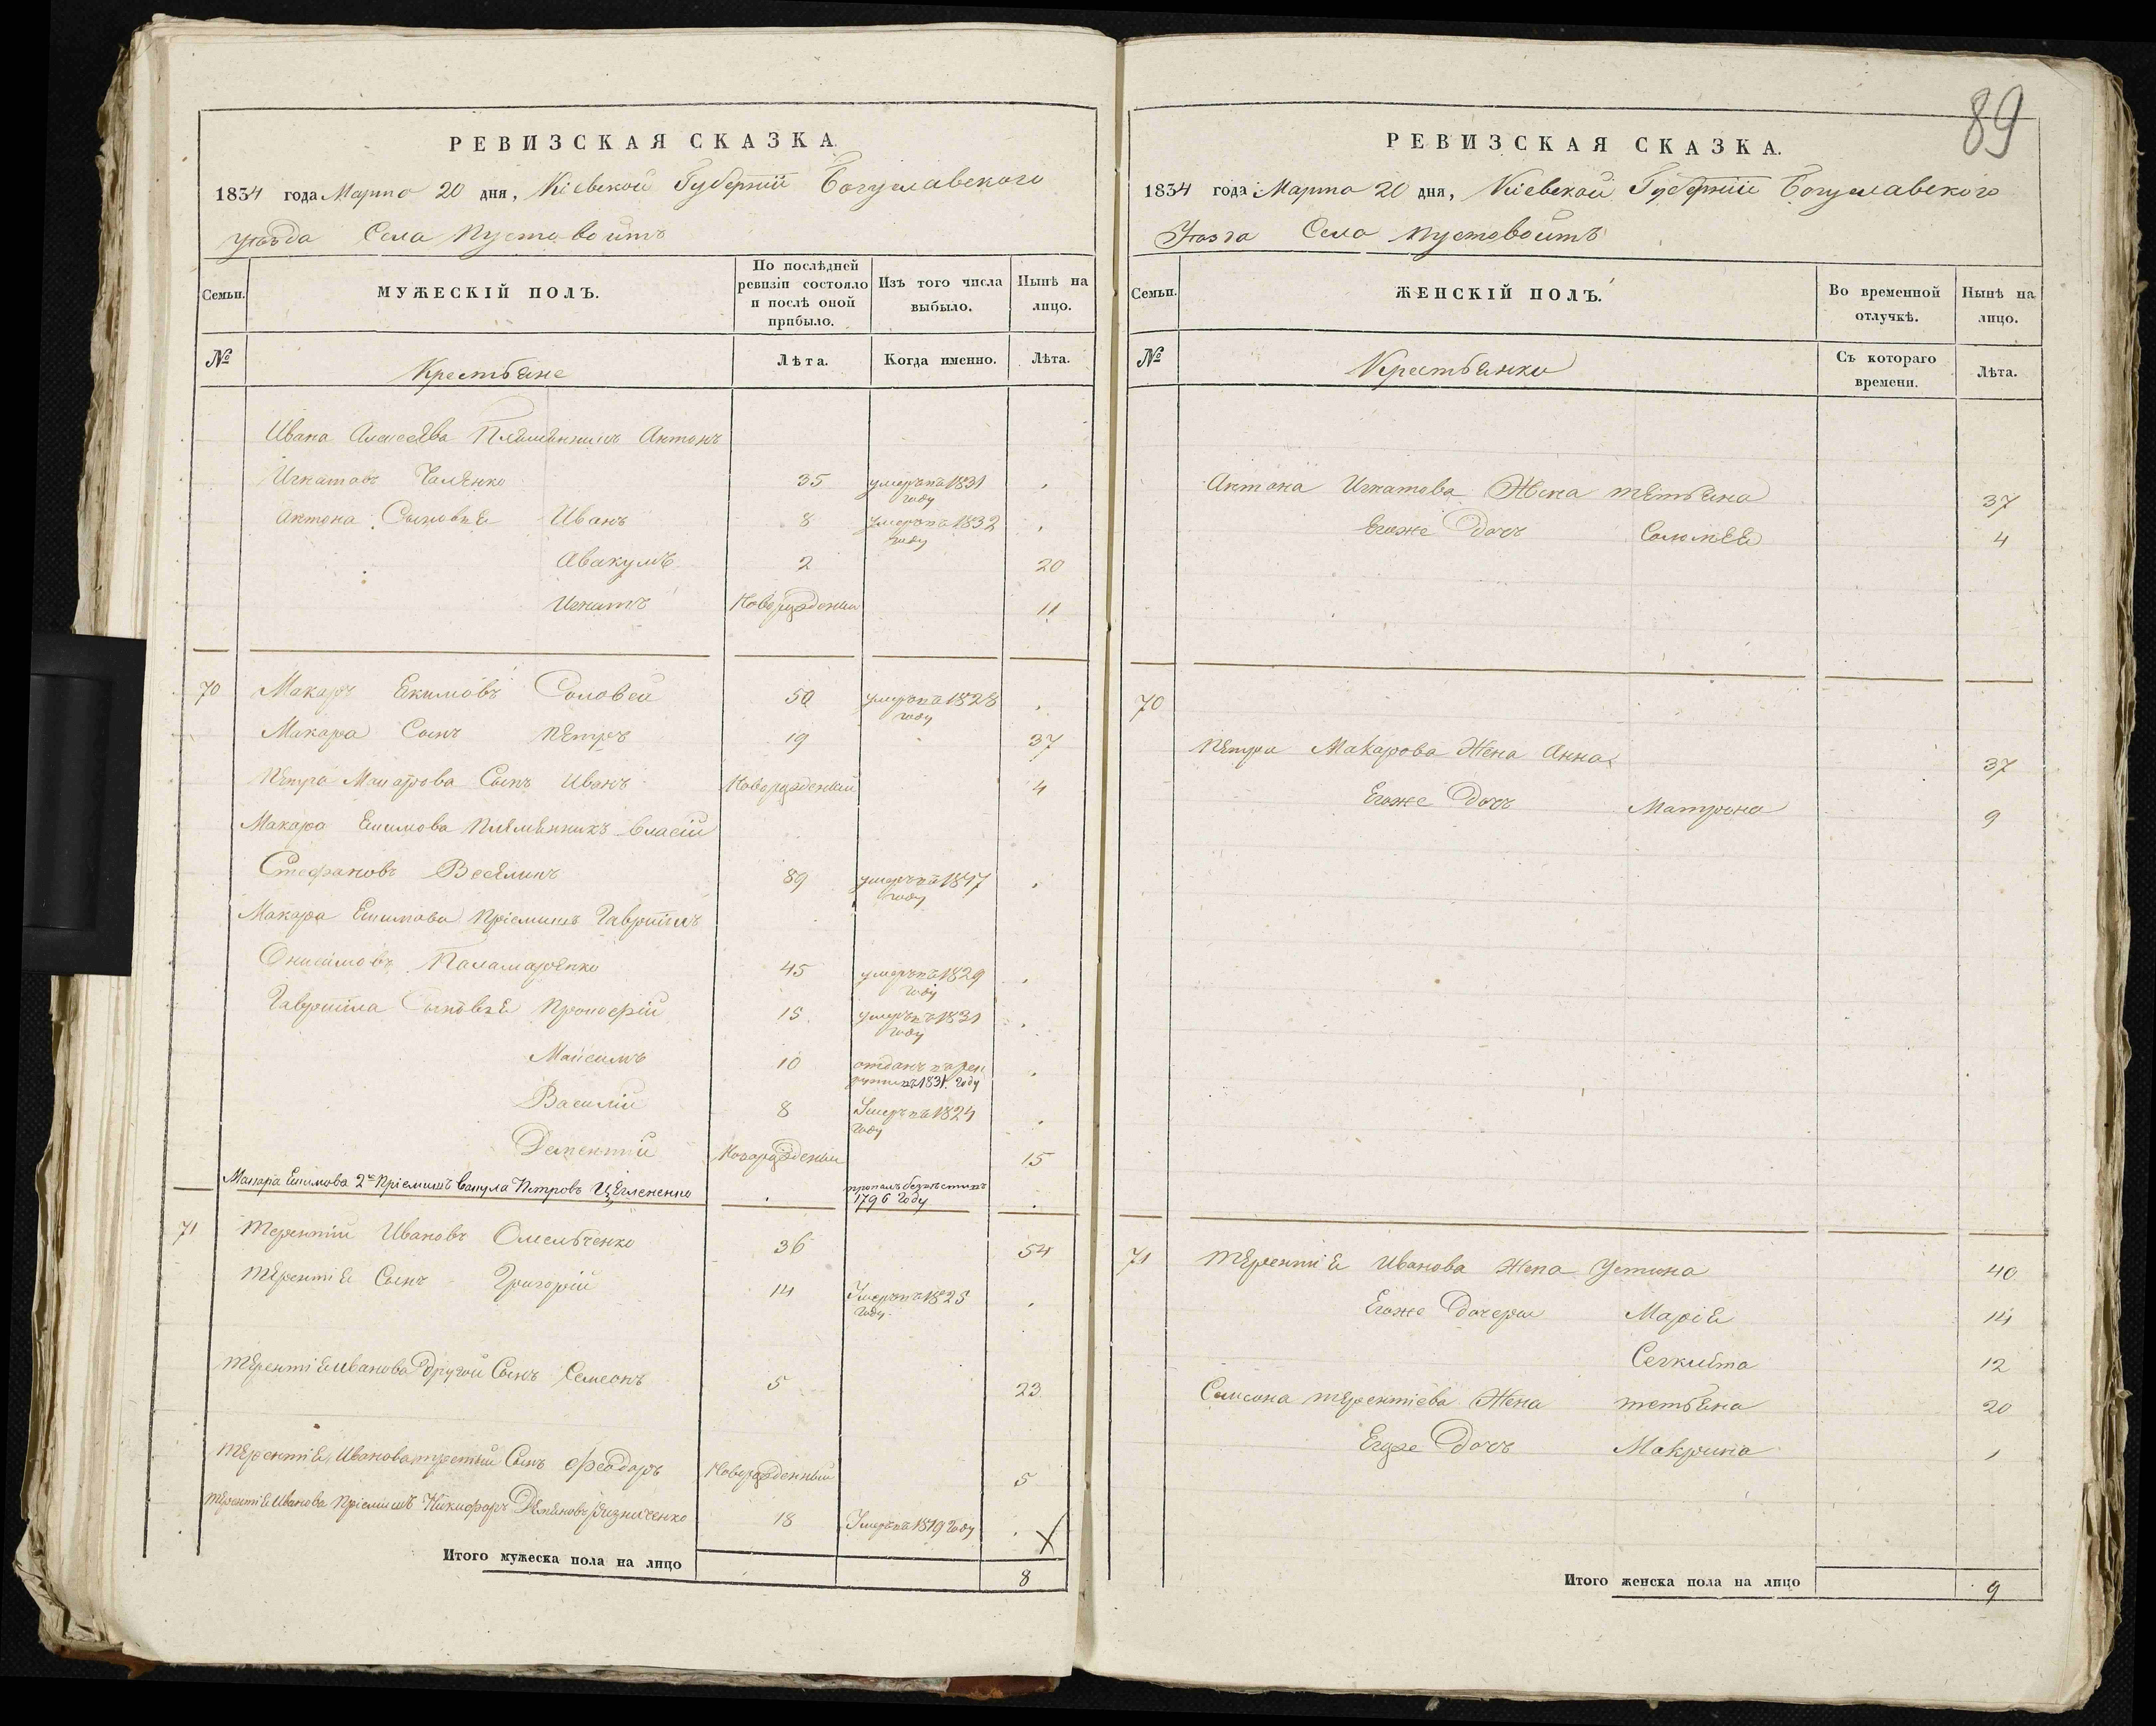 89
РЕВИЗСКАЯ СКАЗКА.
1834 года Марта 20 дня, Кіевской Губерніи Богуславского
уѣзда Села Пустовойтъ
Семьи. МУЖЕСКІЙ ПОЛЪ. По послѣдней ревизіи состояло и послѣ оной прибыло. Изъ того числа выбыло. Нынѣ на лицо.
№ Крестьяне Лѣта. Когда именно. Лѣта.
Ивана Алексеева Племянникъ Антонъ
Игнатовъ 35 умеръ въ 1831 году .
Антона Сыновья Иванъ 8 умеръ въ 1832 году .
Авакумъ 2 20
Игнатъ Новорожденный 11
70 Макаръ Екимовъ Соловей 50 умеръ въ 1828 году .
Макара Сынъ Петръ 19 37
Петра Макарова Сынъ Иванъ Новорожденный 4
Макара Екимова Племянникъ Власій
Стефановъ 89 умеръ въ 1817 году .
Макара Екимова Пріемышъ Гавріилъ
Онисимовъ Паламаренко 45 умеръ въ 1829 году .
Гавріила Сыновья Прокофій 15 умеръ въ 1831 году .
Максимъ 10 отданъ в рекруты въ 1831 году .
Василій 8 Умеръ въ 1824 году .
Дементій Новорожденный 15
Макара Екимова 2й Пріемышъ Вакула Петровъ . пропалъ безъ вѣсти въ 1796 году .
71 Терентій Ивановъ Омельченко 36 54
Терентія Сынъ Григорій 14 Умеръ въ 1825 году .
Терентія Иванова другой Сынъ Семеонъ 5 23
Терентія Иванова третій Сынъ Феодоръ Новорожденный 5
Терентія Иванова Пріемышъ Никифоръ 18 Умеръ въ 1819 году .
Итого мужеска пола на лицо 8
РЕВИЗСКАЯ СКАЗКА.
1834 года Марта 20 дня, Кіевской Губерніи Богуславского
Уѣзда Села Пустовойтъ
Семьи. ЖЕНСКІЙ ПОЛЪ. Во временной отлучкѣ. Нынѣ на лицо.
№ Крестьянки Съ котораго времени. Лѣта.
Антона Игнатова Жена Тетьяна 37
Егоже Дочь Соломея 4
70
Петра Макарова Жена Анна 37
Егоже Дочь Матрона 9
71 Терентія Иванова Жена Устина 40
Егоже Дочери Марія 14
12
Семеона Терентіева Жена Тетьяна 20
Егоже Дочь Макрина 1
Итого женска пола на лицо 9